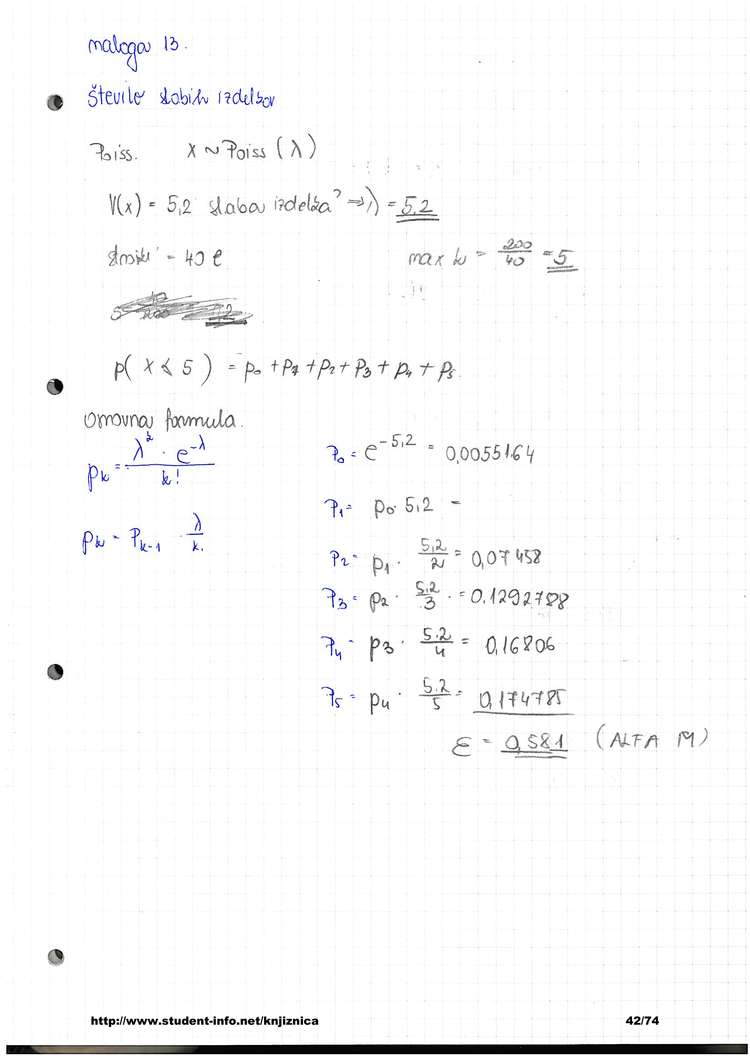 naloga 13.
Število slabih izdelkov
Poiss. X ~ Poiss (λ)
V(x) = 5,2 slaba izdelka² ⇒ λ = 5,2
stroški = 40 € max k = 200/40 = 5
P( X ≤ 5 ) = p₀ + p₁ + p₂ + p₃ + p₄ + p₅.
osnovna formula.
pₖ = λᵏ · e^-λ / k!
pₖ = Pₖ₋₁ · λ/k.
P₀ = e^-5,2 = 0,0055164
P₁ = p₀ · 5,2 =
P₂ = p₁ · 5,2/2 = 0,07458
P₃ = p₂ · 5,2/3 · = 0,1292788
P₄ = p₃ · 5.2/4 = 0,16806
P₅ = p₄ · 5.2/5 = 0,174785
Σ = 0,581 (ALFA M)
http://www.student-info.net/knjiznica 42/74